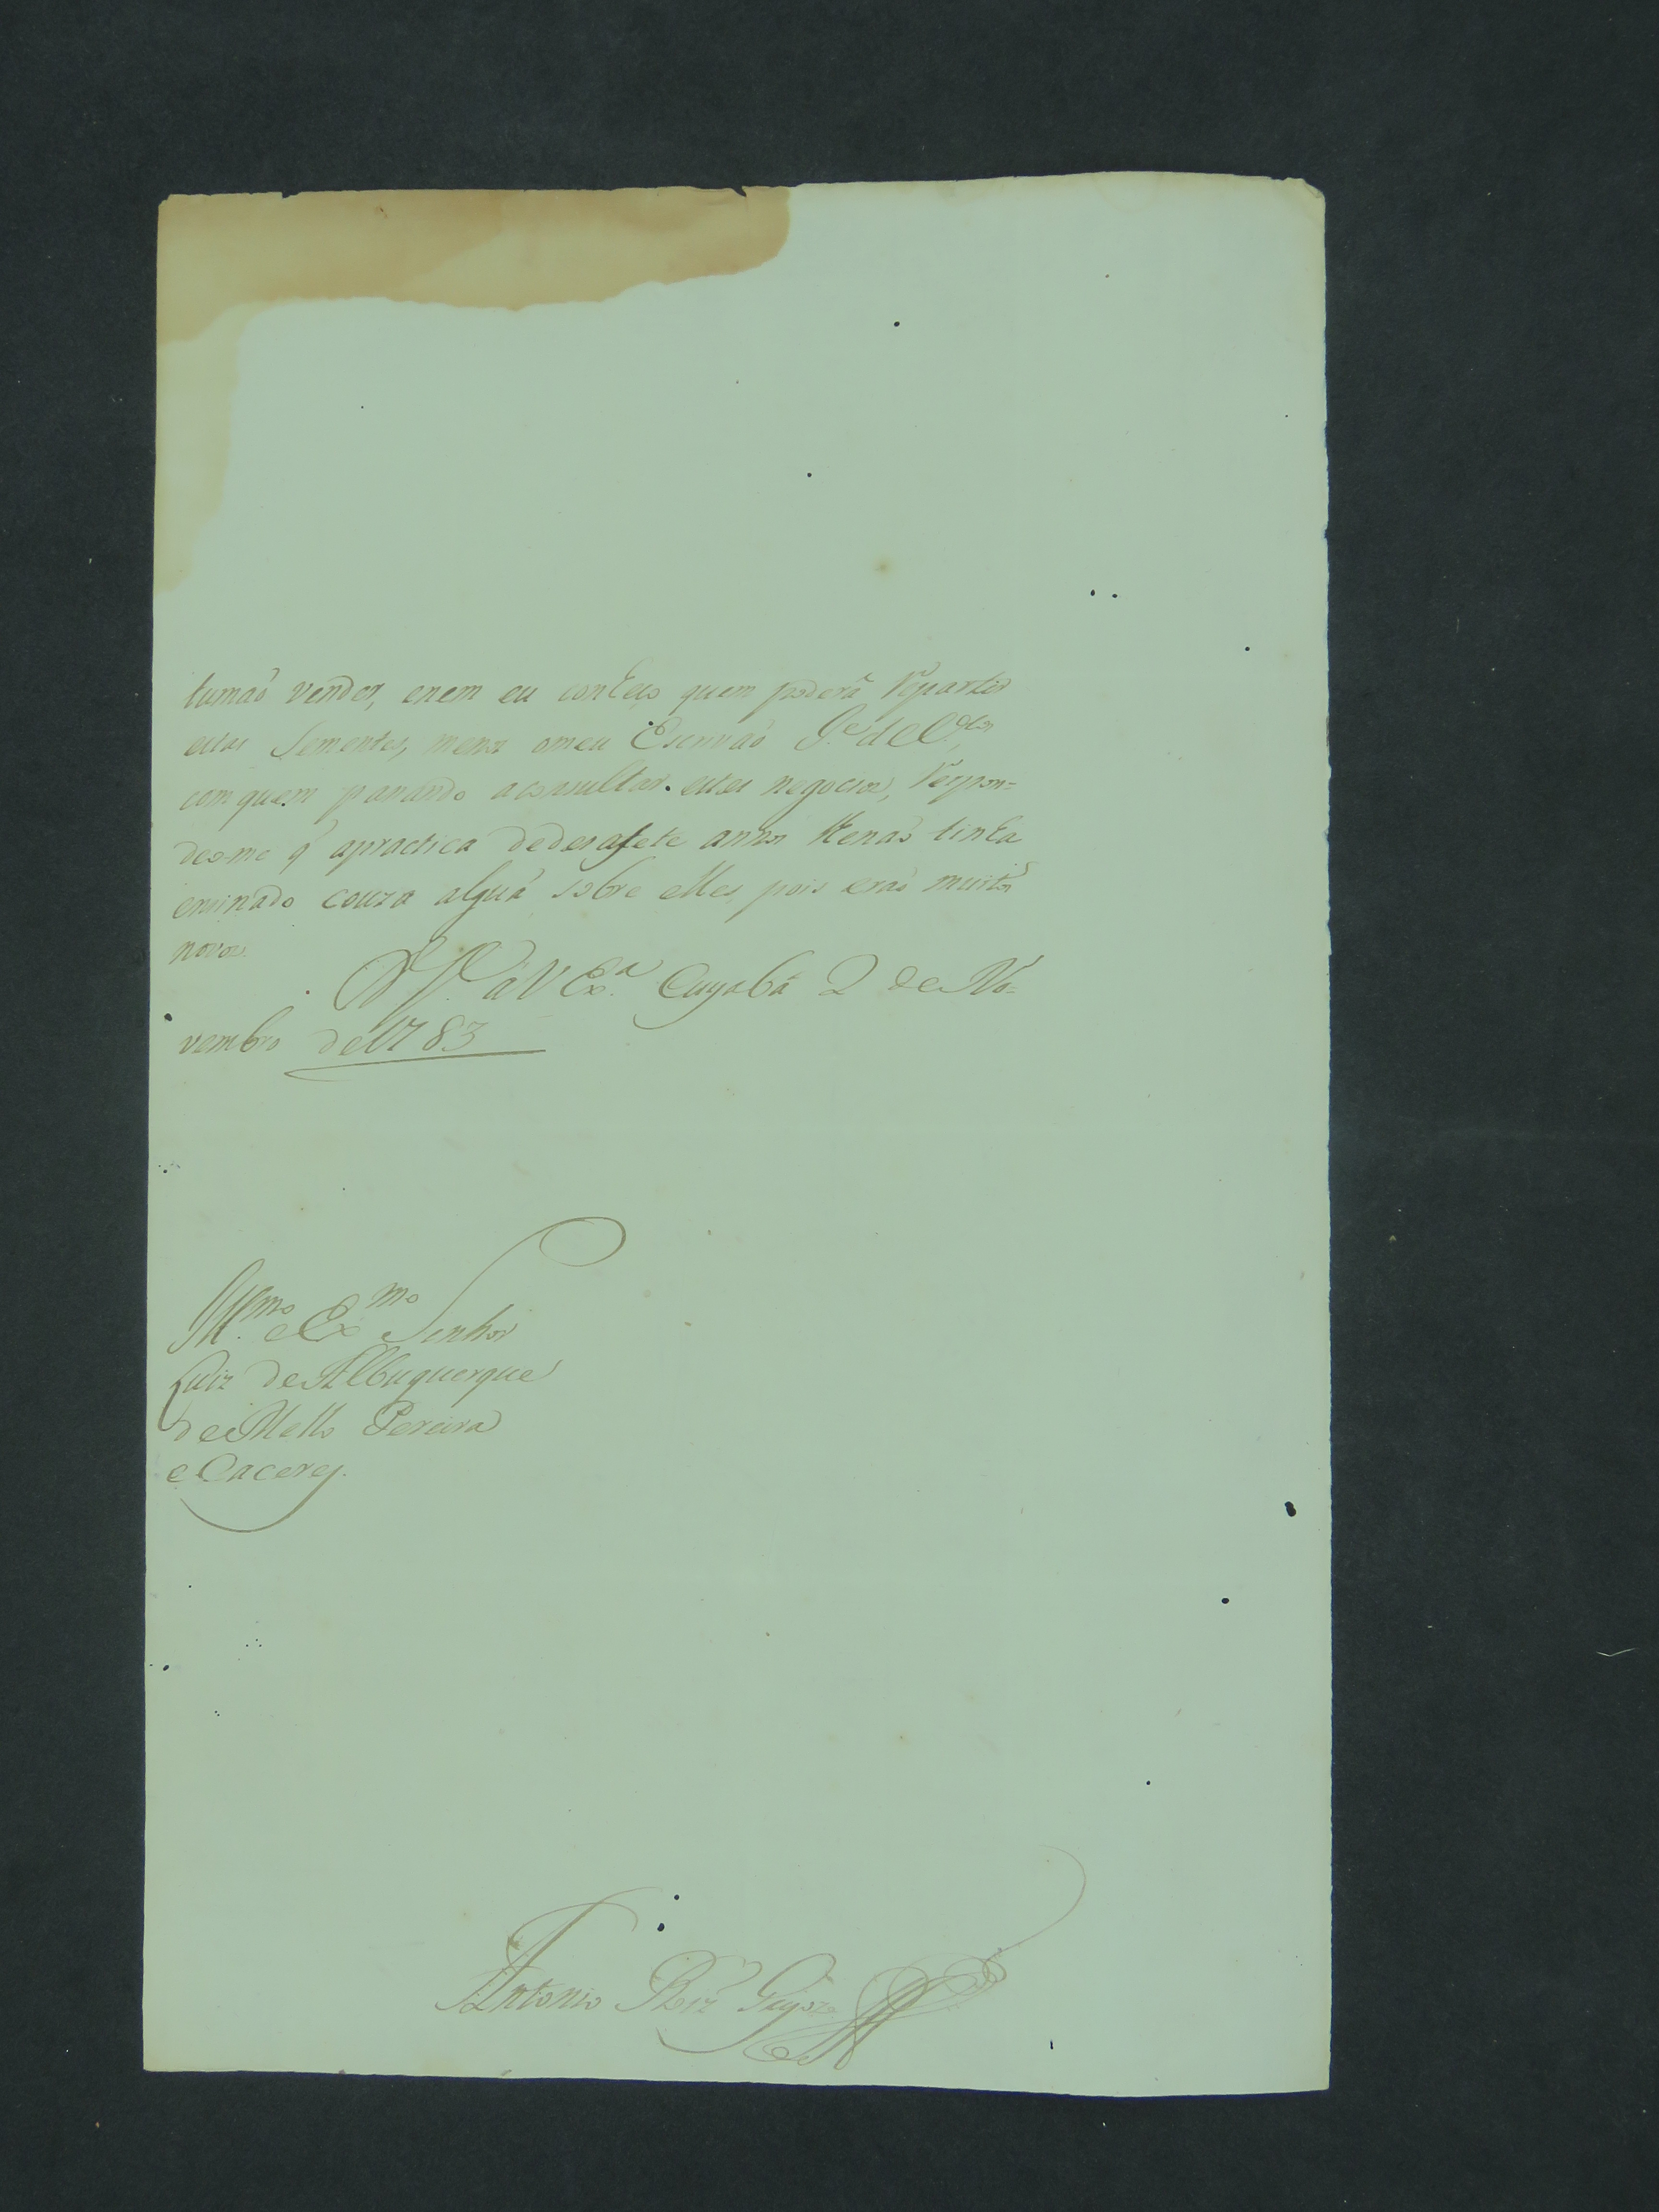 tumaõ vender, enem eu conheço quem poderá Repartir
estas Sementes, menos omeu Escrivaõ
com quem passando aconsultar estes negocios, Respon=
deo-me q̃ apractica dedezasete annos lhenaõ tinha
ensinado couza algũa sobre elles, pois eraõ muitos
novos.
D. G.e a V Ex.a Cuyabá 2 de No=
vembro de 1783
Ill.mo e Ex.mo Senhor
Luiz de Albuquerque
de Mello Pereira
e Caceres.
Antonio Roiz Gayozo